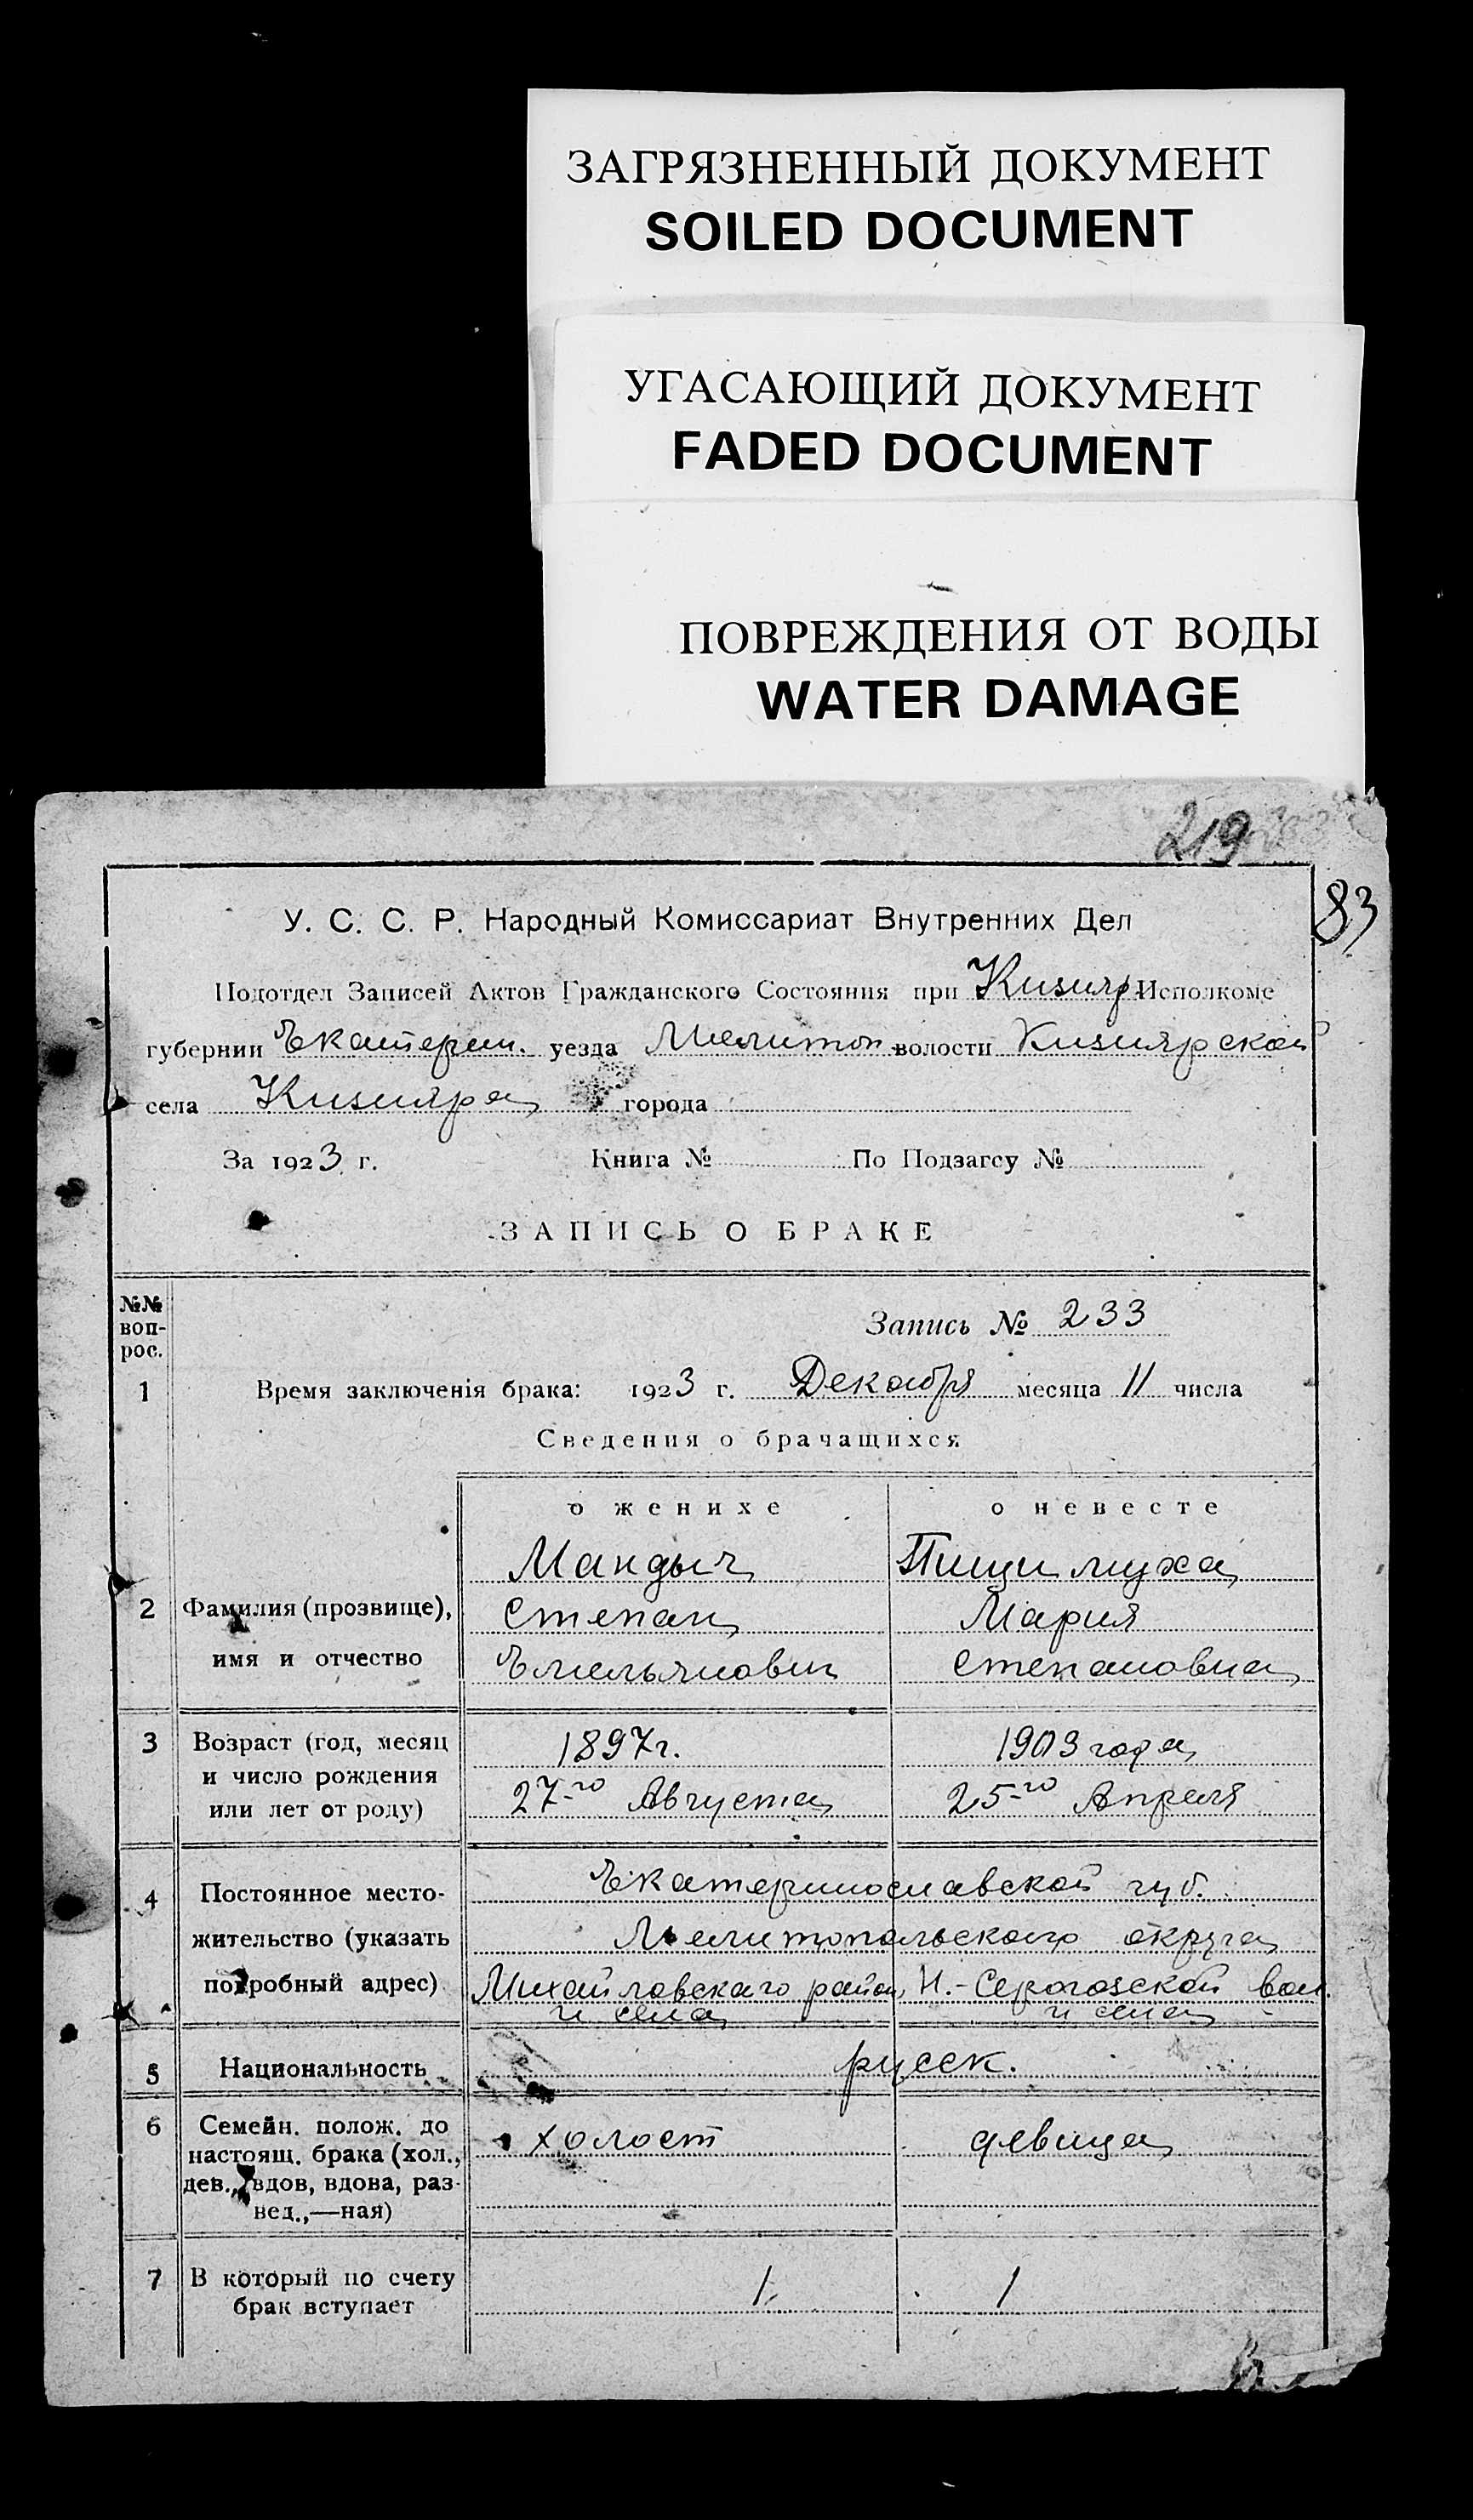 ЗАГРЯЗНЕННЫЙ ДОКУМЕНТ
SOILED DOCUMENT
УГАСАЮЩИЙ ДОКУМЕНТ
FADED DOCUMENT
ПОВРЕЖДЕНИЯ ОТ ВОДЫ
WATER DAMAGE
219
83
У. С. С. Р. Народный Комиссариат Внутренних Дел
Подотдел Записей Актов Гражданского Состояния при Кизияр. Исполкоме
губернии Екатерин. уезда Мелитоп. волости Кизиярской
села Кизияра города
За 1923 г. Книга № По Подзагсу №
ЗАПИСЬ О БРАКЕ
№№ воп-
рос.
Запись № 233
1 Время заключенія брака: 1923 г. Декабря месяца 11 числа
Сведения о брачащихся
о женихе о невесте
Мандыч Пищимуха
2 Фамилия (прозвище), Степан Мария
имя и отчество Емельянович Степановна
3 Возраст (год, месяц 1897г. 1903 года
и число рождения 27-го Августа 25-го Апреля
или лет от роду)
4 Постоянное место- Екатеринославской губ.
жительство (указать Мелитопольского округа
подробный адрес) Михайловскаго район, Н.-Серогозской вол.
и села и села
5 Национальность русск.
6 Семейн. полож. до холост девица
настоящ. брака (хол.,
дев., вдов, вдова, раз-
вед.,—ная)
7 В который по счету 1 1
брак вступает